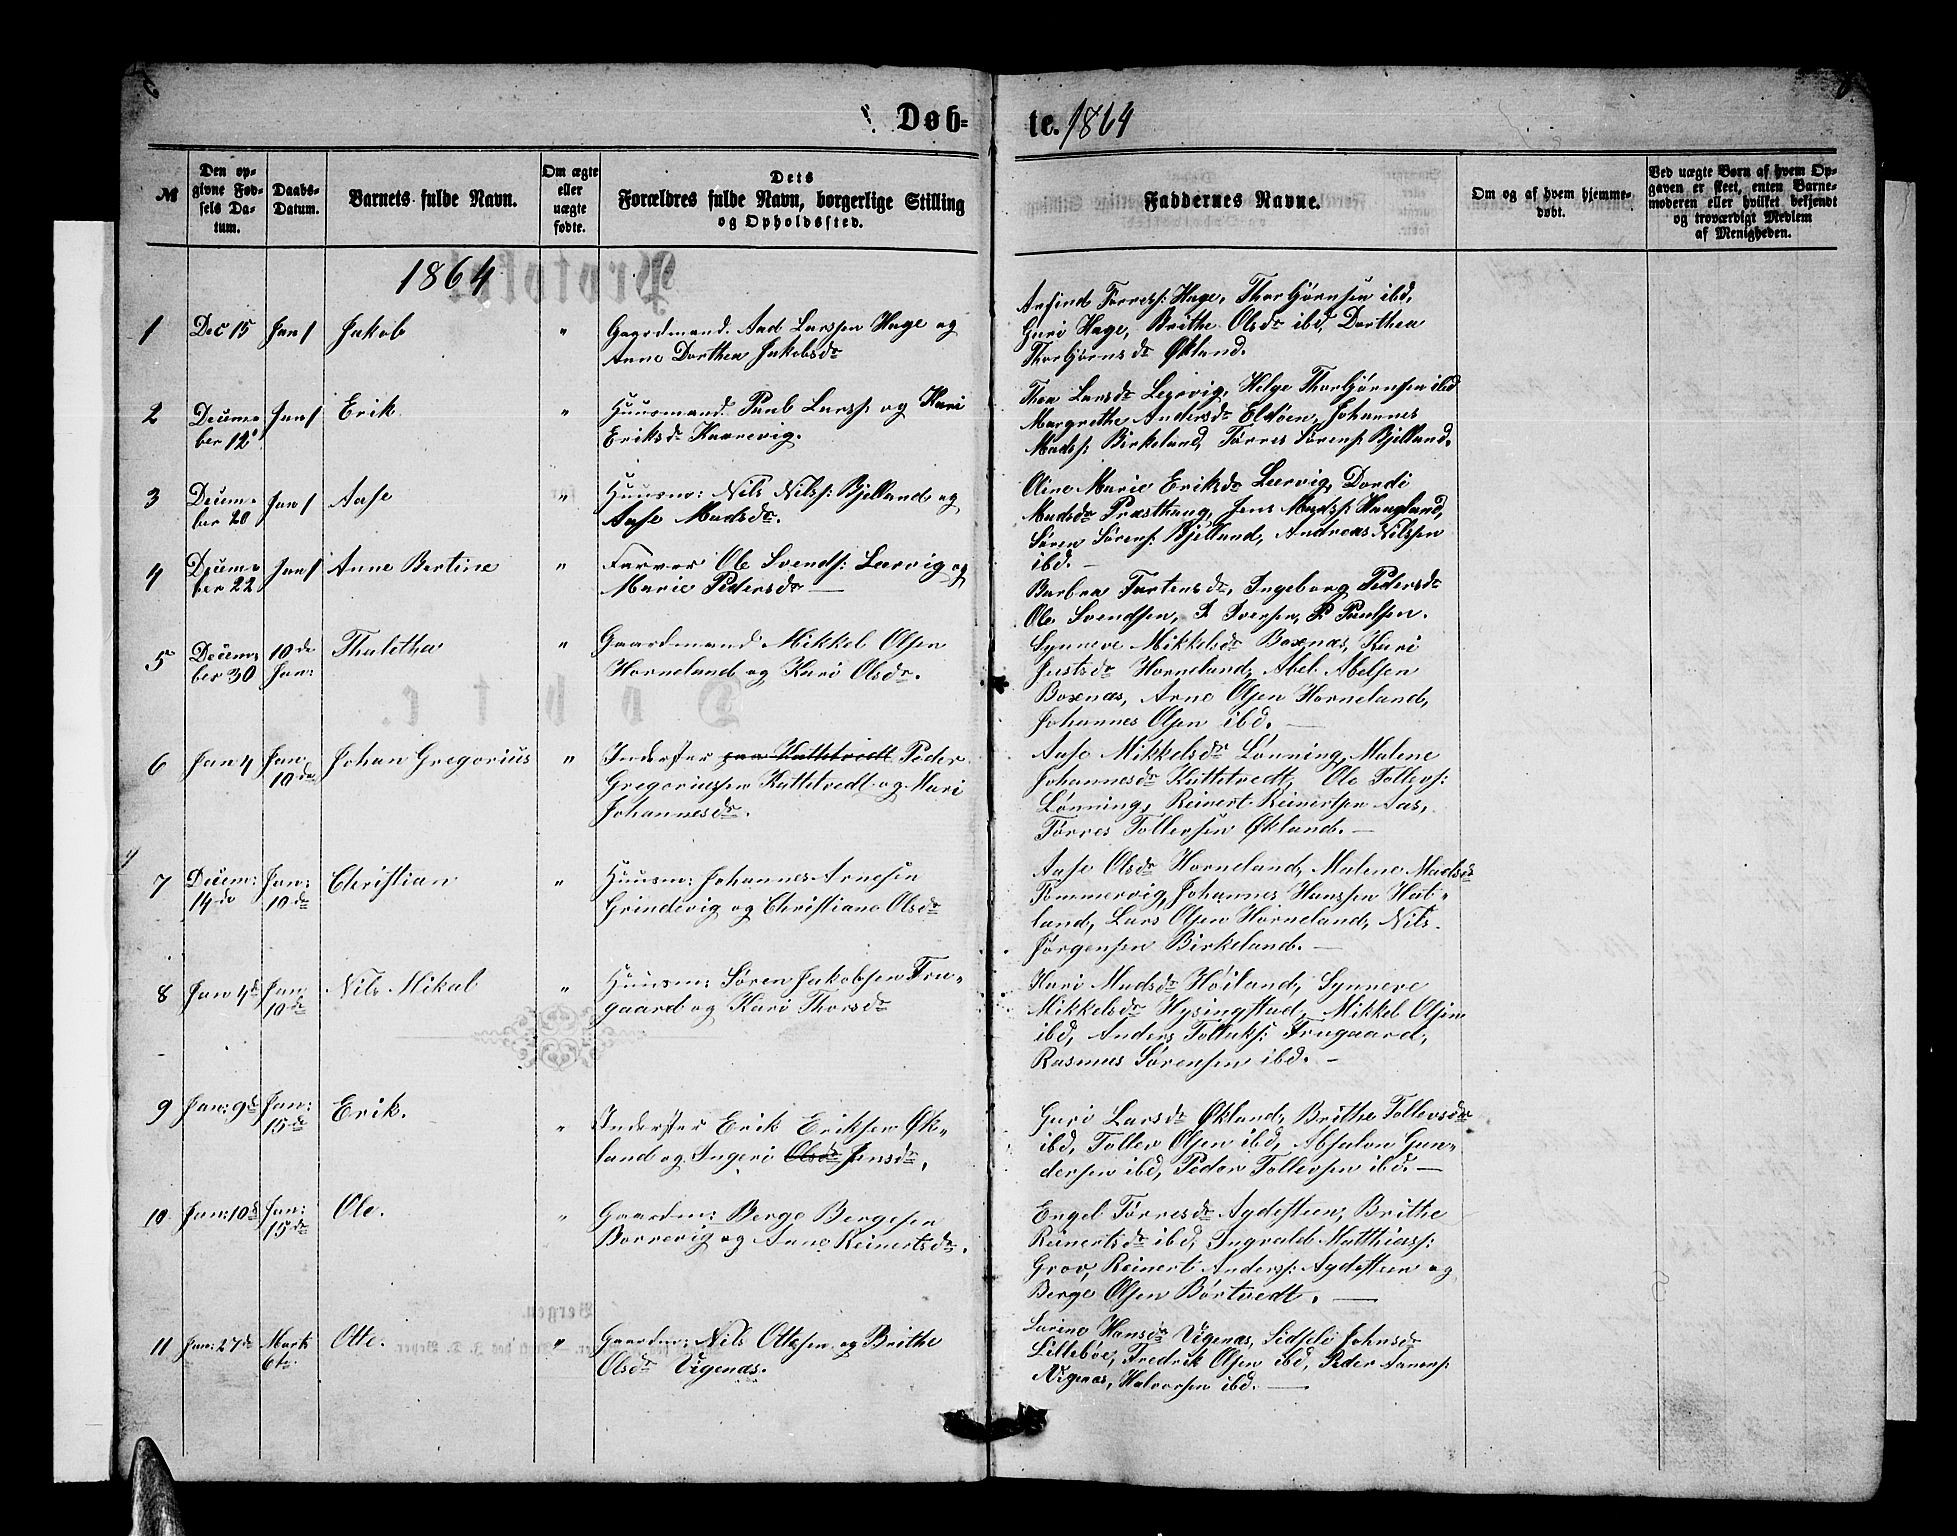 Døb-
te. 1864
№
Den op-
givne Fød-
sels Da-
tum.
Daabs-
Datum.
Barnets fulde Navn.
Om ægte
eller
uægte
fødte.
Dets
Forældres fulde Navn, borgerlige Stilling
og Opholdssted.
Faddernes Navne.
Om og af hvem hjemme-
døbt.
Ved uægte Børn af hvem Op-
gaven er skeet, enten Barne-
moderen eller hvilket bekjendt
og troværdigt Medlem
af Menigheden.
1864
1 Dec 15 Jan 1 Jakob " Gaardmand Aad Larssen Hage og
Anne Dorthea Jakobsdr
Arfind Torress: Hage, Thorbjørnsen ibd,
Guri Hage, Brithe Olsdr ibd, Dorthea
Thorbjørnsdr Økland.
2 Decem-
ber 12 Jan 1 Erik " Huusmand Paul Larss: og Kari
Eriksdr Kaarevig.
Thea Larsdr Leirvig, Helge Thorbjørnsen ibd
Margrethe Andersdr Eldøen, Johannes
Madss: Birkeland, Tørres Sørens: Bjelland.
3 Decem-
ber 20 Jan 1 Aase " Huusm: Nils Nilss: Bjelland og
Aase Madsdr.
Oline Marie Eriksdr Lærvig, Dordi
Madsdr Præsthaug, Jens Madss: Haugland,
Søren Sørens: Bjelland, Andreas Nilssen
ibd. —
4 Decem-
ber 22 Jan 1 Anne Bertine " Farver Ole Svends: Lærvig og
Marie Pedersdr —
Barbra Tortensdr, Ingeborg Pedersdr
Ole Svendsen, I Iversen, P Paulsen.
5 Decem-
ber 30 10de
Jan: Thaletha " Gaardmand Mikkel Olsen
Horneland og Kari Olsdr.
Synneve Mikkelsdr Boxnæs, Kari
Justsdr Horneland, Abel Abelsen
Boxnæs, Arne Olsen Horneland,
Johannes Olsen ibd. —
6 Jan 4 Jan
10de Johan Gregorius " Inderster paa Kattetvedt Peder
Gregoriussen Kattetvedt og Mari
Johannesdr.
Aase Mikkelsdr Lønning, Malene
Johannesdr Kattetvedt, Ole Tollevs:
Lønning, Reinert Reinertsen Aas,
Tørres Tollevsen Økland. —
7 Decem:
14de Jan:
10de Christian " Huusm: Johannes Arnesen
Grindevig og Christiane Olsdr
Aase Olsdr Horneland, Malene Madsdr
Tømmervig, Johannes Hanssen Hat-
land, Lars Olsen Horneland, Nils
Jørgensen Birkeland. —
8 Jan 4de Jan
10de Nils Mikal " Huusm: Søren Jakobsen Tru-
gaard og Kari Thorsdr
Kari Madsdr Høiland, Synneve
Mikkelsdr Hysingstad, Mikkel Olsen
ibd, Anders Tollaks: Trugaard,
Rasmus Sørensen ibd. —
9 Jan: 9de Jan:
15de Erik. " Inderster Erik Eriksen Øk-
land og Ingeri Olsdr Jensdr.
Guri Larsdr Økland, Brithe Tollevsdr
ibd, Tollev Olsen ibd, Absalon Gun-
dersen ibd, Peder Tollevsen ibd. —
10 Jan: 10de Jan:
15de Ole. " Gaardm: Berge Bergesen
Borrevig og Anne Reinertsdr.
Engel Tørresdr Agdesteen, Brithe
Reinertsdr ibd, Ingvald Matthiass:
Grov, Reinert Anderss: Agdesteen og
Berge Olsen Børtvedt. —
11 Jan: 27de Marts
6te. Otte. " Gaardm: Nils Ottesen og Brithe
Olsdr Vigenæs.
Larine Hansdr Vigenæs, Sidseli Johnsdr
Lillebøe, Fredrik Olsen ibd, Peder
Vigenæs, Halvorsen ibd. —